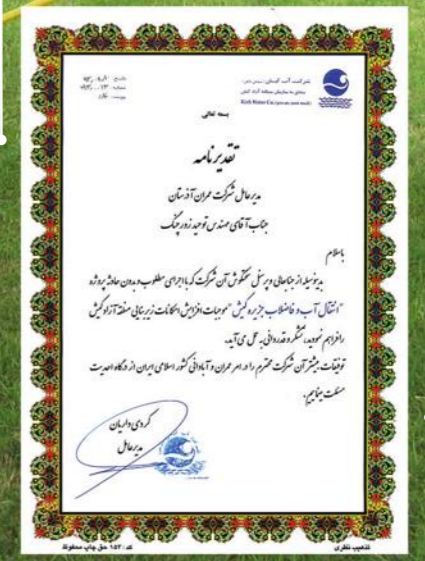 شرکت آب کیشان (سهامی خاص)
متعلق به سازمان منطقه آزاد کیش
Kish Water Co. (private joint stock)
تاریخ:
شماره:
پیوست:
بسمه تعالی
تقدیرنامه
مدیرعامل شرکت عمران آذرستان
جناب آقای مهندس توحید زورچنگ
باسلام
بدینوسیله از جنابعالی و پرسنل سختکوش آن شرکت که با اجرای مطلوب و بدون حادثه پروژه
"انتقال آب و فاضلاب جزیره کیش" موجبات افزایش امکانات زیربنایی منطقه آزاد کیش
را فراهم نمودید، تشکر و قدردانی به عمل می آید.
توفیقات بیشتر آن شرکت محترم را در امر عمران و آبادانی کشور اسلامی ایران از درگاه احدیت
مسئلت مینماییم.
کردی داریان
مدیرعامل
تذهیب نظری
کد: ۱۵۲ حق چاپ محفوظ